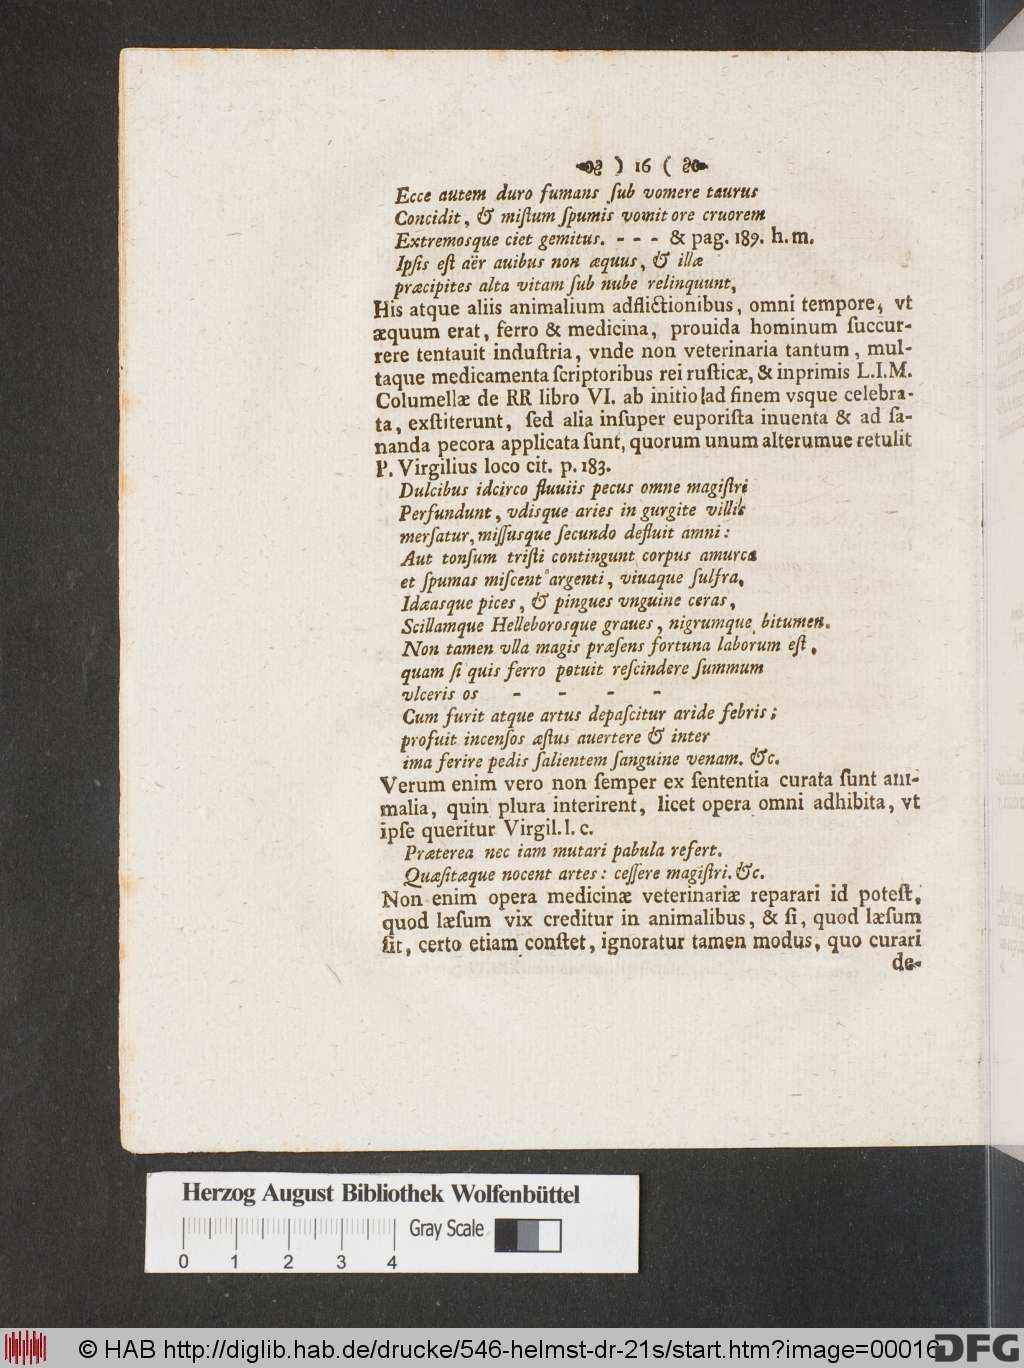 ) 16 (
Ecce autem duro fumans ſub vomere taurus
Concidit, & miſtum ſpumis vomit ore cruorem
Extremosque ciet gemitus. - - - & pag. 189. h.m.
Ipſis eſt aër auibus non æquus, & illæ
præcipites alta vitam ſub nube relinquunt,
His atque aliis animalium adflictionibus, omni tempore, vt
æquum erat, ferro & medicina, prouida hominum ſuccur-
rere tentauit induſtria, vnde non veterinaria tantum, mul-
taque medicamenta ſcriptoribus rei ruſticæ, & inprimis L.I.M.
Columellæ de RR libro VI. ab initio ad finem vsque celebra-
ta, exſtiterunt, ſed alia inſuper euporiſta inuenta & ad ſa-
nanda pecora applicata ſunt, quorum unum alterumue retulit
P. Virgilius loco cit. p. 183.
Dulcibus idcirco fluuiis pecus omne magiſtri
Perfundunt, vdisque aries in gurgite villis
merſatur, miſſusque ſecundo defluit amni:
Aut tonſum triſti contingunt corpus amurca
et ſpumas miſcent argenti, viuaque ſulfra,
Idæasque pices, & pingues vnguine ceras,
Scillamque Helleborosque graues, nigrumque bitumen.
Non tamen vlla magis præſens fortuna laborum eſt,
quam ſi quis ferro potuit reſcindere ſummum
vlceris os - - - -
Cum furit atque artus depaſcitur aride febris;
profuit incenſos æſtus auertere & inter
ima ferire pedis ſalientem ſanguine venam. &c.
Verum enim vero non ſemper ex ſententia curata ſunt ani-
malia, quin plura interirent, licet opera omni adhibita, vt
ipſe queritur Virgil. l. c.
Præterea nec iam mutari pabula refert.
Quæſitæque nocent artes: ceſſere magiſtri. &c.
Non enim opera medicinæ veterinariæ reparari id poteſt,
quod læſum vix creditur in animalibus, & ſi, quod læſum
ſit, certo etiam conſtet, ignoratur tamen modus, quo curari
de-
Herzog August Bibliothek Wolfenbüttel
Gray Scale
0 1 2 3 4
© HAB http://diglib.hab.de/drucke/546-helmst-dr-21s/start.htm?image=00016
DFG